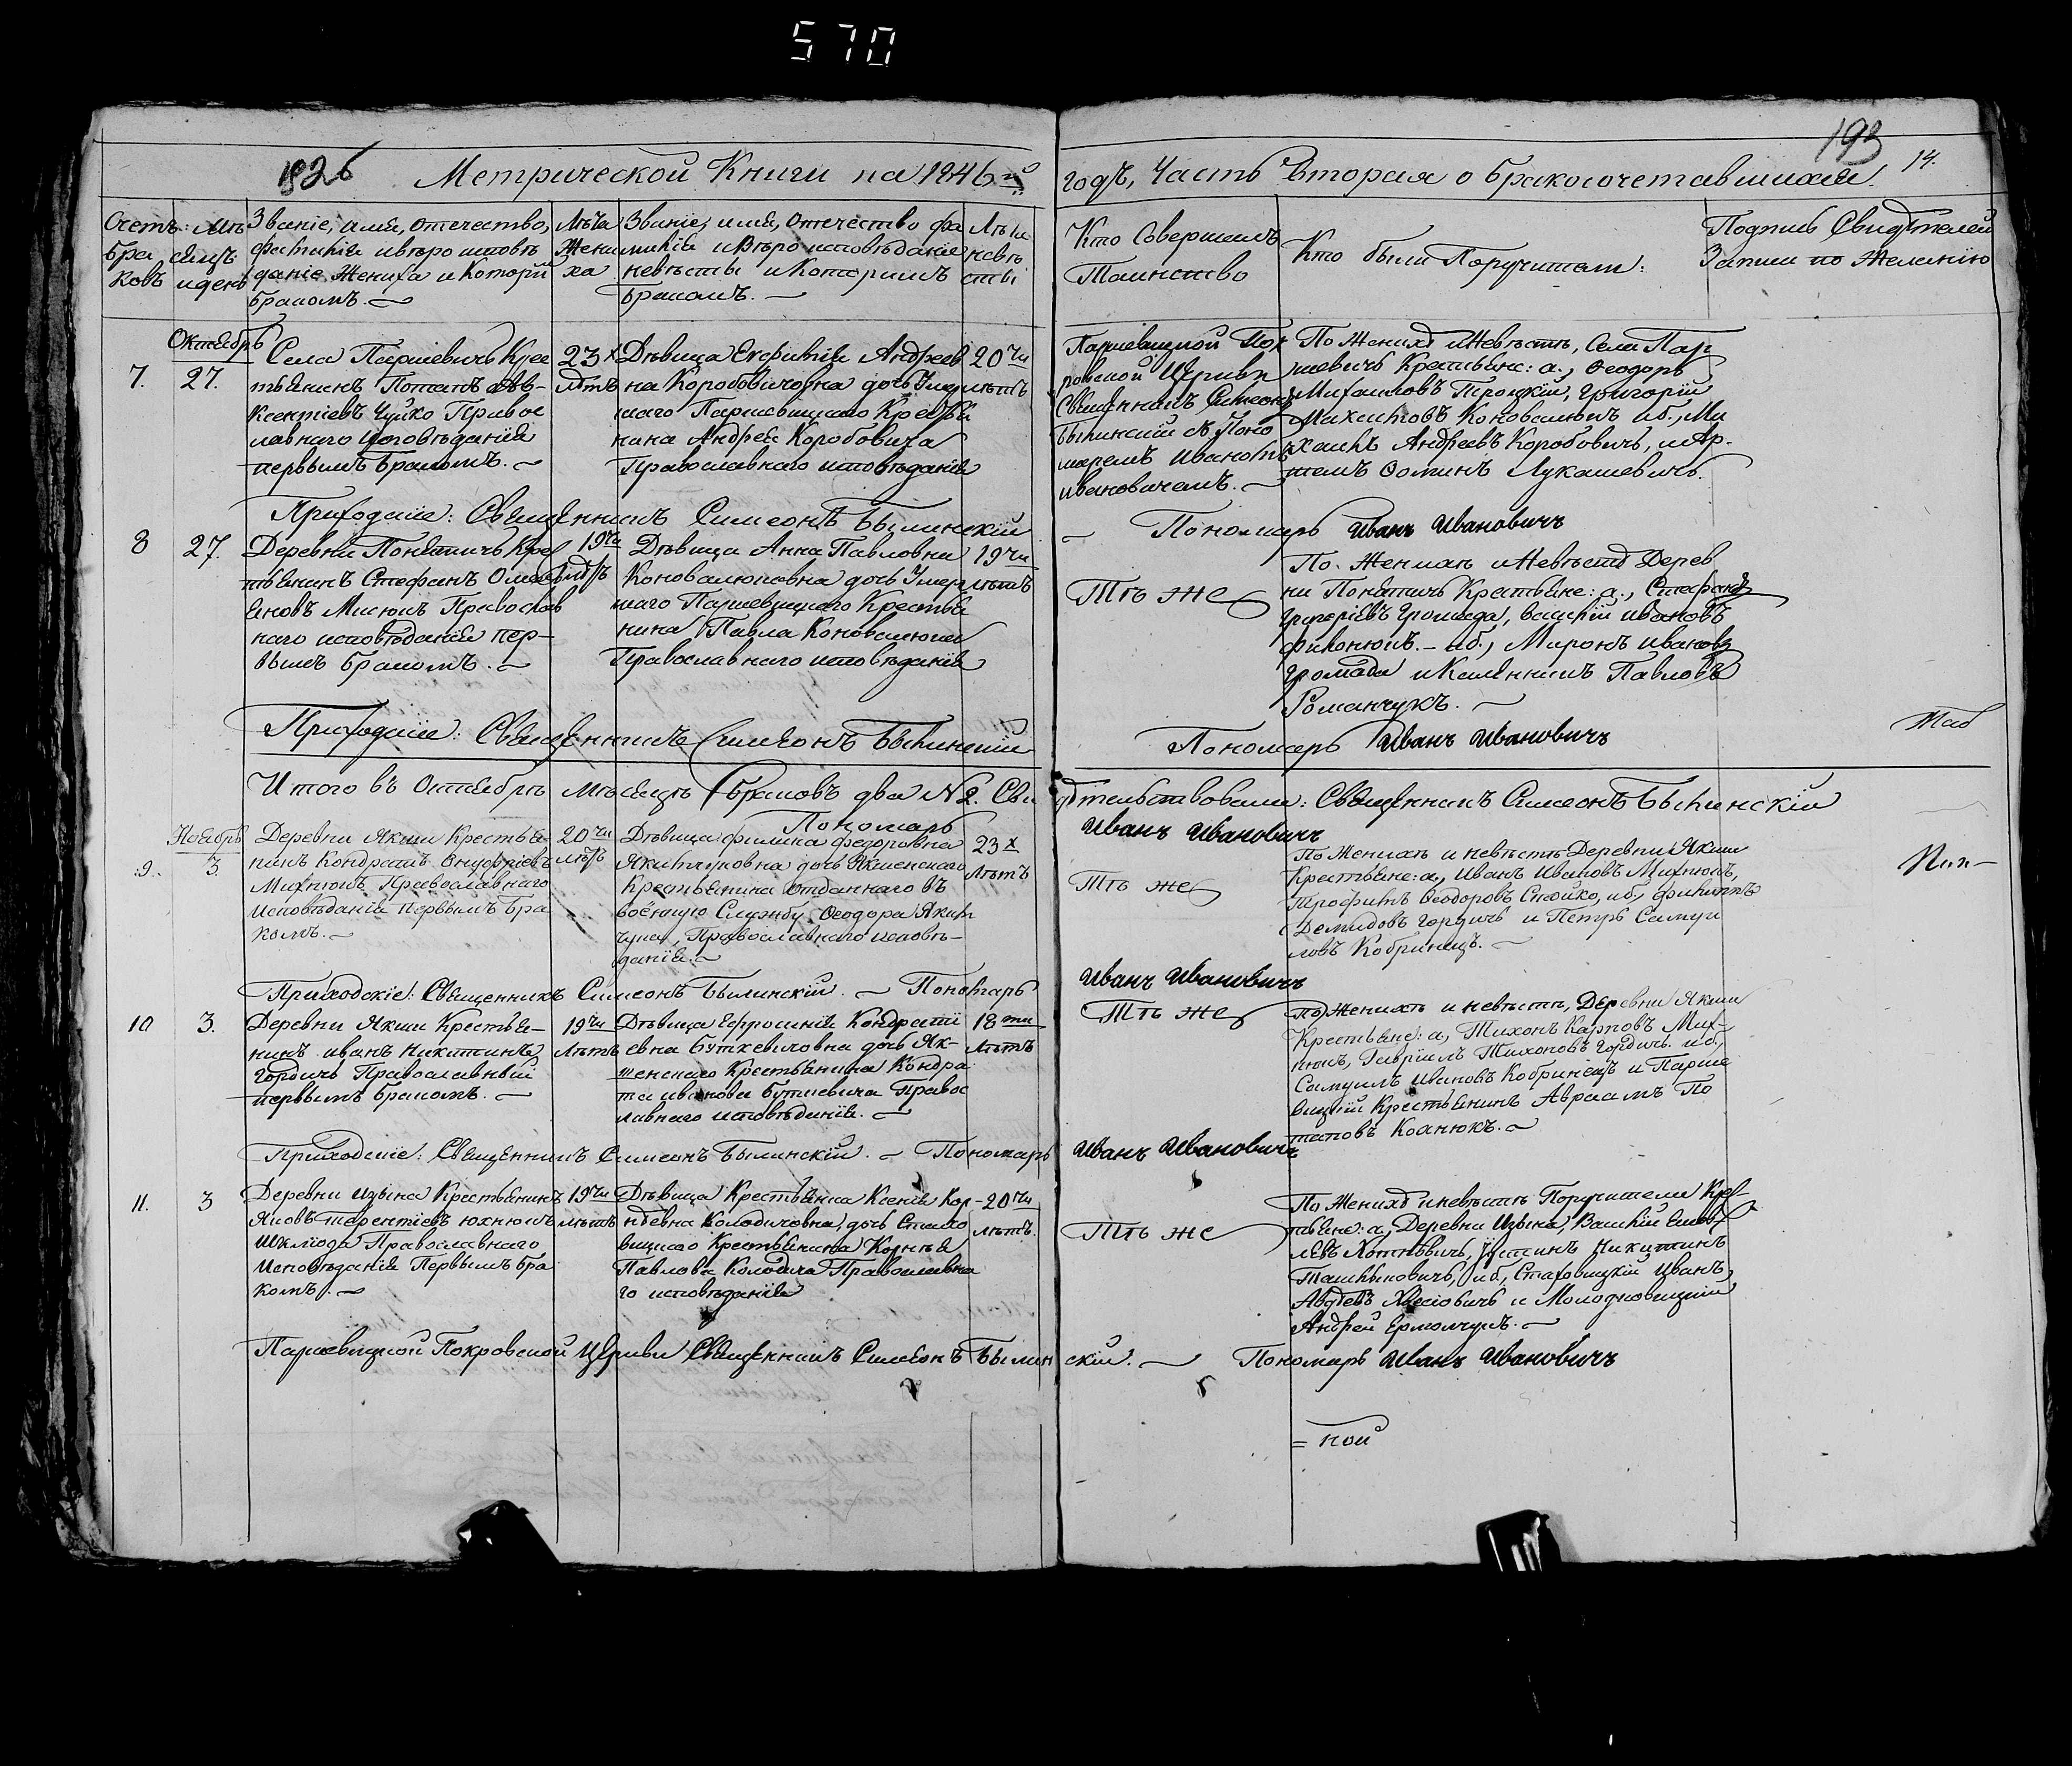 570
193
14.
1826 Метрической Книги на 1846й годъ, Часть Вторая о бракосочетавшихся.
Счетъ Бра ковъ
Мѣ сяцъ и день
Званіе, имя, отечество, фамилія и вѣро исповѣ даніе Жениха и которымъ бракомъ.
Лѣта Жени ха
Званіе, имя, отечество фа милія и Вѣро исповѣданіе невѣсты и Которымъ бракомъ.
Лѣта невѣ сты
Кто Совершалъ Таинство
Кто были Поручители:
Подпись Свидѣтелей Записи по Желанію
Октябрь
7.
27.
Села Паршевичъ Крес
тьянинъ Потапъ Ав-
ксентіевъ Чуйко Правос
лавнаго Исповѣданія
первымъ бракомъ.
23х
лѣтъ
Дѣвица Андреев
на Коробовичовна дочь Умер
шаго Паршевицкаго Крестья
нина Андрея Коробовича
Православнаго исповѣданія
20ти
лѣтъ
Паршевицкой Пок
ровской Церкви
Священникъ Симеонъ
Былинскій съ Поно
маремъ Иваномъ
Ивановичемъ.
По Женихѣ и Невѣстѣ, Села Пар
шевичъ Крестьяне: а., Ѳеодоръ
Михаиловъ Григорій
Коновалюкъ, иб., Ми
хаилъ Андреевъ Коробовичъ, и Ар-
темъ Ѳоминъ Лукашевичъ.
Приходскіе: Священникъ Симеонъ Былинскій
Пономарь Иванъ Ивановичъ
8
27.
Деревни Понятичъ Крес
тьянинъ Стефанъ
Мисюкъ Православ
наго исповѣданія пер-
вымъ бракомъ.
19ти
лѣтъ
Дѣвица Анна Павловна
Коновалюковна дочь Умер
шаго Паршевицкаго Крестья
нина Павла Коновалюка
Православнаго исповѣданія
19ти
лѣтъ
Тѣ же
По Женихѣ и Невѣстѣ Дерев
ни Понятичъ Крестьяне: а., Стефанъ
Григоріевъ Громада, Василій Ивановъ
иб., Миронъ Ивановъ
Громада и Павловъ
Романчукъ.
Приходскіе: Священникъ Симеонъ Былинскій
Пономарь Иванъ Ивановичъ
Итого въ Октябрѣ Мѣсяцѣ браковъ два №2. Сви
дѣтельствовали: Священникъ Симеонъ Былинскій
Пономарь Иванъ Ивановичъ
Ноябрь
9.
3.
Деревни Якши Крестья-
нинъ Кондратъ Онуфріевъ
Михнюкъ Православнаго
Исповѣданія первымъ бра
комъ.
20ти
лѣтъ
Дѣвица Федоровна
дочь Якшенскаго
Крестьянина отданнаго въ
военную Службу, Ѳеодора Яким
чука, Православнаго исповѣ-
данія.
23х
Лѣтъ
Тѣ же
По Женихѣ и невѣстѣ Деревни Якши
Крестьяне: а, Иванъ Ивановъ Михнюкъ,
Трофимъ Ѳеодоровъ иб.,
Демидовъ Гордичъ и Петръ Самуи
ловъ Кобринецъ.
Приходскіе: Священникъ Симеонъ Былинскій. Пономарь
Иванъ Ивановичъ
10
3.
Деревни Якши Крестья-
нинъ Иванъ Никитинъ
Гордичъ Православный
первымъ бракомъ.
19ти
Лѣтъ
Дѣвица Ефросинія Кондрати
евна Буткевичовна дочь Як-
шенскаго Крестьянина Кондра
та Иванова Буткевича Правос
лавнаго исповѣданія.
18ти
Лѣтъ
Тѣ же
По Женихѣ и невѣстѣ, Деревни Якши
Крестьяне: а, Тихонъ Карповъ Мих-
нюкъ, Гавріилъ Тихоновъ Гордичъ иб.,
Самуилъ Ивановъ Кобринецъ и Парше
вицкій Крестьянинъ Авраамъ По
таповъ Коанюкъ.
Приходскіе: Священникъ Симеонъ Былинскій. Пономарь
Иванъ Ивановичъ
11.
3
Деревни Изына Крестьянинъ
Яковъ Терентіевъ Юхнюкъ
Шклюда Православнаго
Исповѣданія Первымъ бра
комъ.
19ти
лѣтъ
Дѣвица Крестьянка Ксенія Кор-
нѣевна Колодичовна, дочь Стахо
вицкаго Крестьянина Корнѣя
Павлова Колодича Православна
го исповѣданія
20ти
лѣтъ.
Тѣ же
По Женихѣ и невѣстѣ Поручители Крес
тьяне: а, Деревни Изына, Василій
Хотновичъ, Устинъ Никитинъ
иб., Стаховицкій Иванъ
Авдѣевъ и Молодковицкій
Андрей Ермолчукъ.
Паршевицкой Покровской Церкви Священникъ Симеонъ Былин
скій. Пономарь Иванъ Ивановичъ
= ной